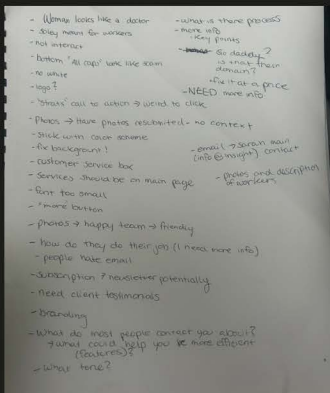 - Woman looks like a doctor
- safety means for workers
- not interact
- bottom "All caps" looks like scam
- no white
- logo?
- "stats" call to action → weird to click
- Photos → Have photos resubmitted - no context
- Stick with color scheme
- fix background!
- customer service box
- Services should be on main page
- font too small
- "more button
- photos → happy team → friendly
- how do they do their job (I need more info)
- people hate email
- subscription? newsletter potentially
- need client testimonials
- branding
- What do most people contact you about?
→ what could help you be more efficient
(features)?
- What tone?
- what is there process
- more info
key points
- Go daddy?
is that their
domain?
- fix it at a price
- NEED more info
- email → sarah main
(info@insight) contact
- photos and description
of workers